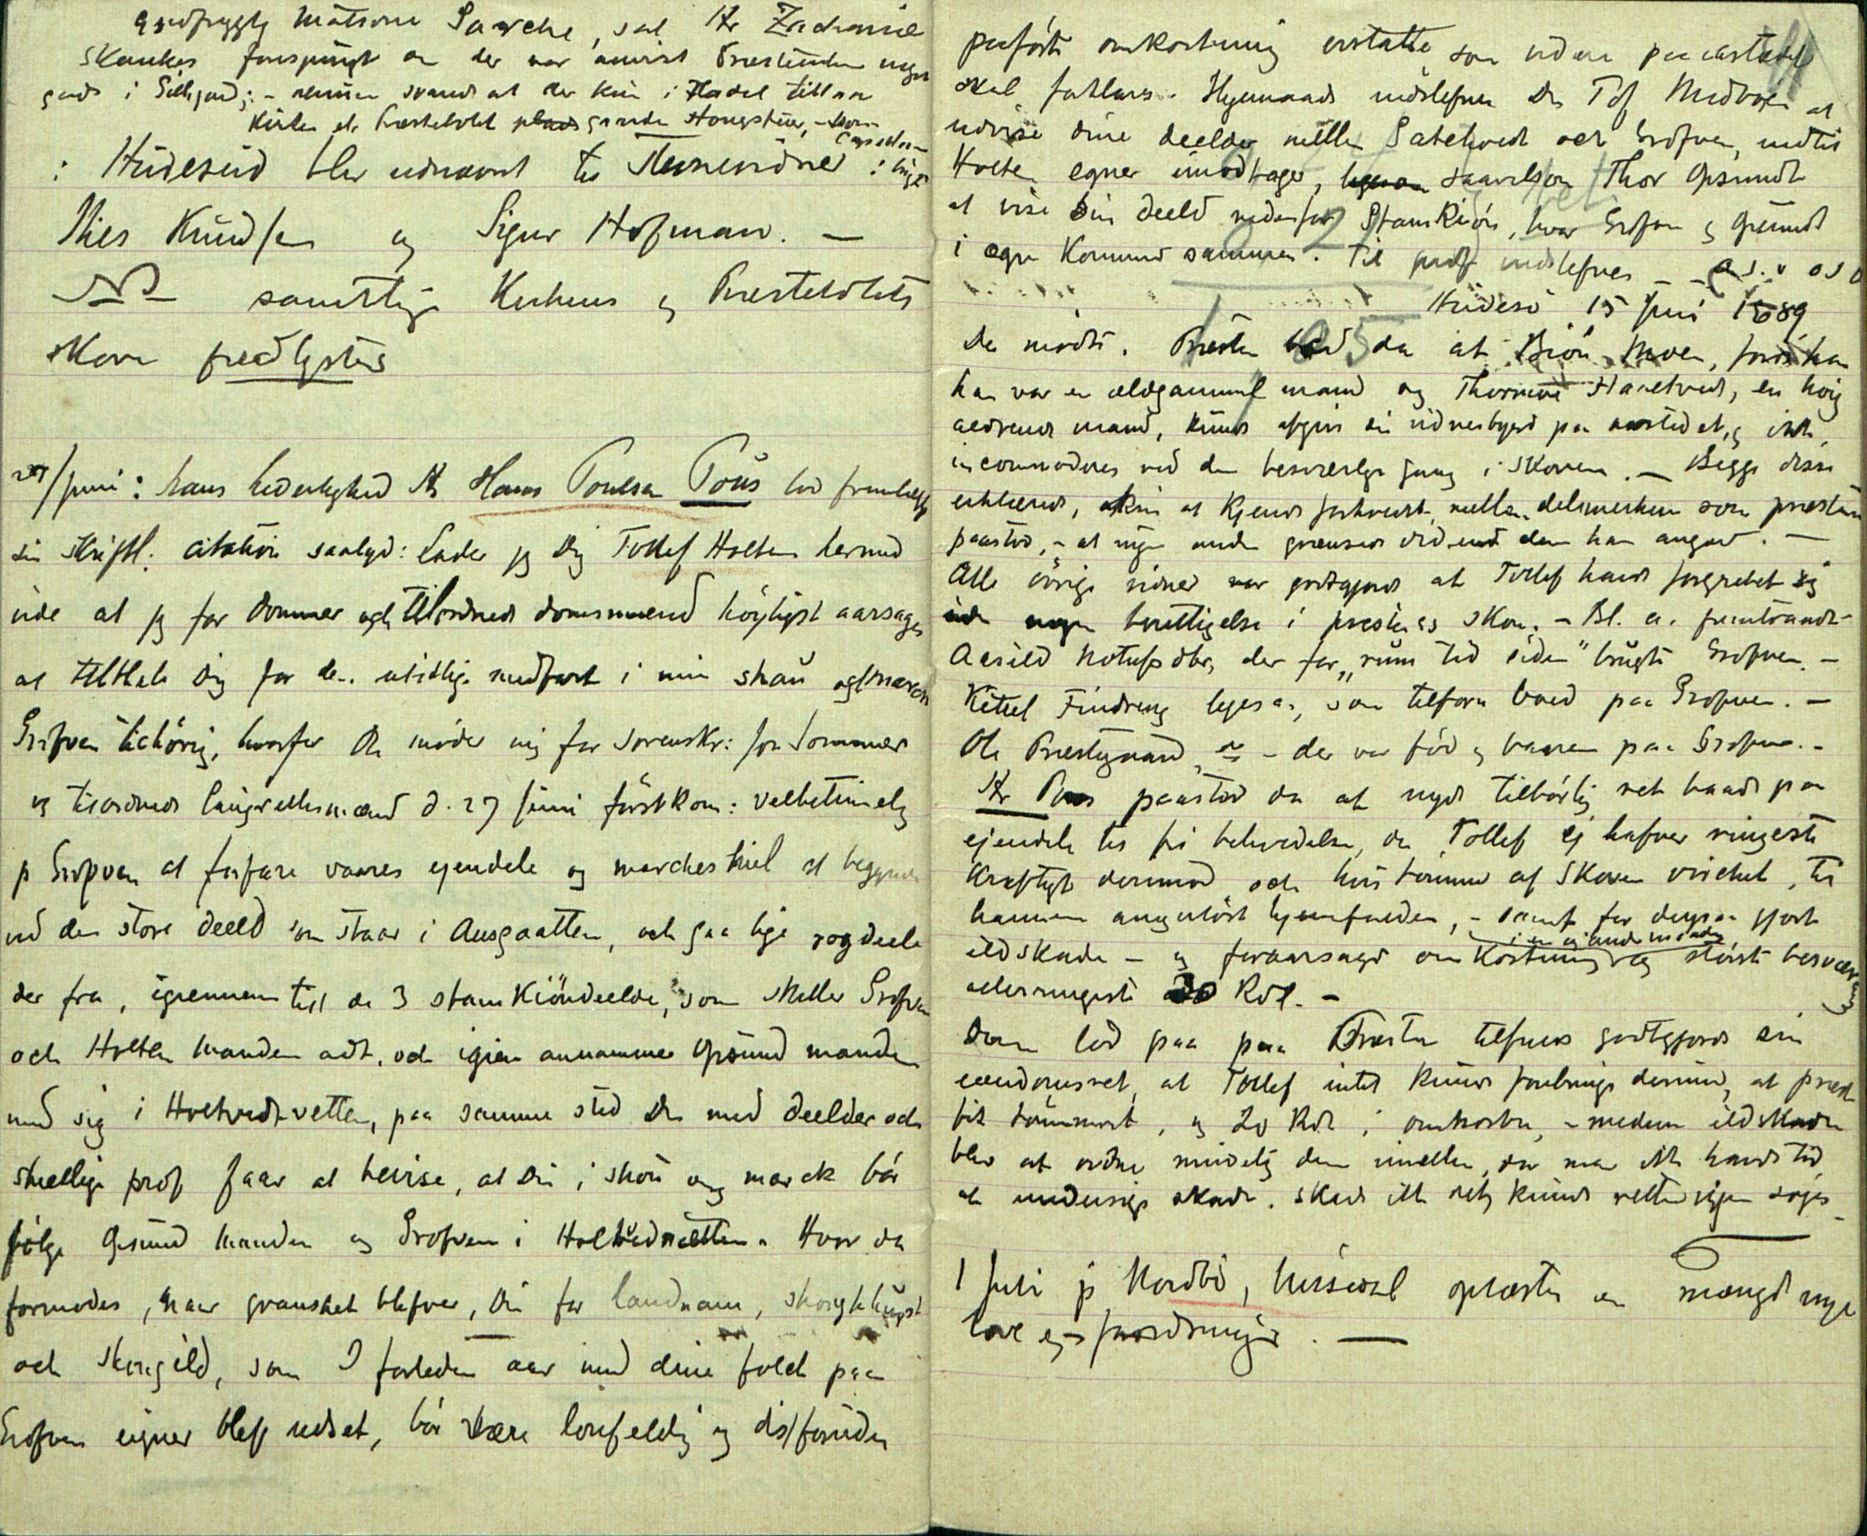 Gudfrygtig Matrone Saxche, sal. Hr Zacharie
Skankes forespurgt om der var anvist Præsteenken noget
gods i Sillejord; - almuen svared at der kun i Hadel tillaa
Kirken et Præstebolet grinde Stongstun,
: Hvideseid blev udnævnt til Stevnevidner :
Nies Knudsen og Sigur Hofman. —
NB samtlige Kirkens og Præstebolets
skove fredlystes
27/juni: hans hæderlighed Hr Hans Poulsen Pous lod fremlægge
sin skriftl: citation saalyd: Lader jeg Dig Tollef Holten hermed
vide at jeg for dommer och tilordnede domsmænd høyligst aarsages
at tiltale Dig for den utidlige medfart i min skau og March
Grofven tilhørig, hvorfor Du møder mig for Sorenskr: for dommer
og tilordnede laugrettesmænd d. 27 juni førstkom: velbetimelig
p Grofven at forfare vaares ejendele og marcheskiel at begynde
ved den store deeld som staar i Ausgaatten, och gaa lige rogdeele
der fra, igiennem till de 3 stamkiöndeelde, som skiller Grofven
och Holten manden adt, och igien annammer Opsund manden
med sig i Holtvedvetten, paa samme sted Du med deelder och
skiellige prof faar at bevise, at Du i skou og marck bør
følge Opsund manden og Grofven i Holtvednætten. Hvor da
formodes, naar gransket blefver, Du for landnam, skoughugst
och skougild, som I forleden aar med dine folch paa
Grofven eigner blef udsat, bør være lovfeldig og dis/foruden
paaførte omkostning erstatte, som videre paa aastædet
skal forklares. Hjemmaads indstefnes Du Tof Midboen at
udvise dine deelder mellem Satekvedt och Grofven, indtil
Holten egner imodtager, saavelsom Thor Opsundt
at vise sin deeld nedenfor Stamkiön, hvor Grofven og Opsundt
i egne kommer sammen. Til prof indstefnes - o s. v o s v
Hvidesø 15 juni 1689
De mødte. Præsten bad da at Biön Moen, fordi han
han var en ældgammel mand og Thormoe Haretved, en høig
aedrende mand, kunde afgive sin vidnesbyrd paa aastedet, og ikke
incommoderes ved den besværlige gang i skoven. — Begge disse
erklærede, ikke at kjende forhvert mellem delsmerken som præsten
paastod, - at ingen anden grændser vidende end dem han angav. —
Alle øvrige vidner var godtgjorde at Tollef havde forgrebet sig
uden nogen berettigelse i prestens skov. - Bl. a. fremtraadte
Aasild Notufsdtr, der for "rum tid siden" brugte Grofven. -
Kittel Findreng ligesaa, som tilforn boed paa Grofven. —
Ole Præstegaard - der var fød og baaren paa Grofven. -
Hr Pous paastod da at nyde tilbørlig ret baade paa
ejendele til fri beholdelse, da Tollef ej hafver ringeste
kraftigt derimod och hvis tømmer af Skoven virchet, til
hannem angerløst hjemfalden, - samt for dyssen gjort
ildskade - og foraarsaget omkostning og største besværing
allerringeste 20 Rdl. -
Dom lød paa paa Præsten tilfulde godtgjorde sin
eiendomsret, at Tollef intet kunde frembringe derimod, at præst
fik tømmeret, og 20 Rdl i omkostn, - medens ildskaden
blev at ordne mindelig dem imellem, da man ikke havde tid
at undersøge skade. Skede ikke dette kunde retten igien søges
1 juli p Nordbö, hvissedal oplæstes en mængde nye
love og forordninger. —